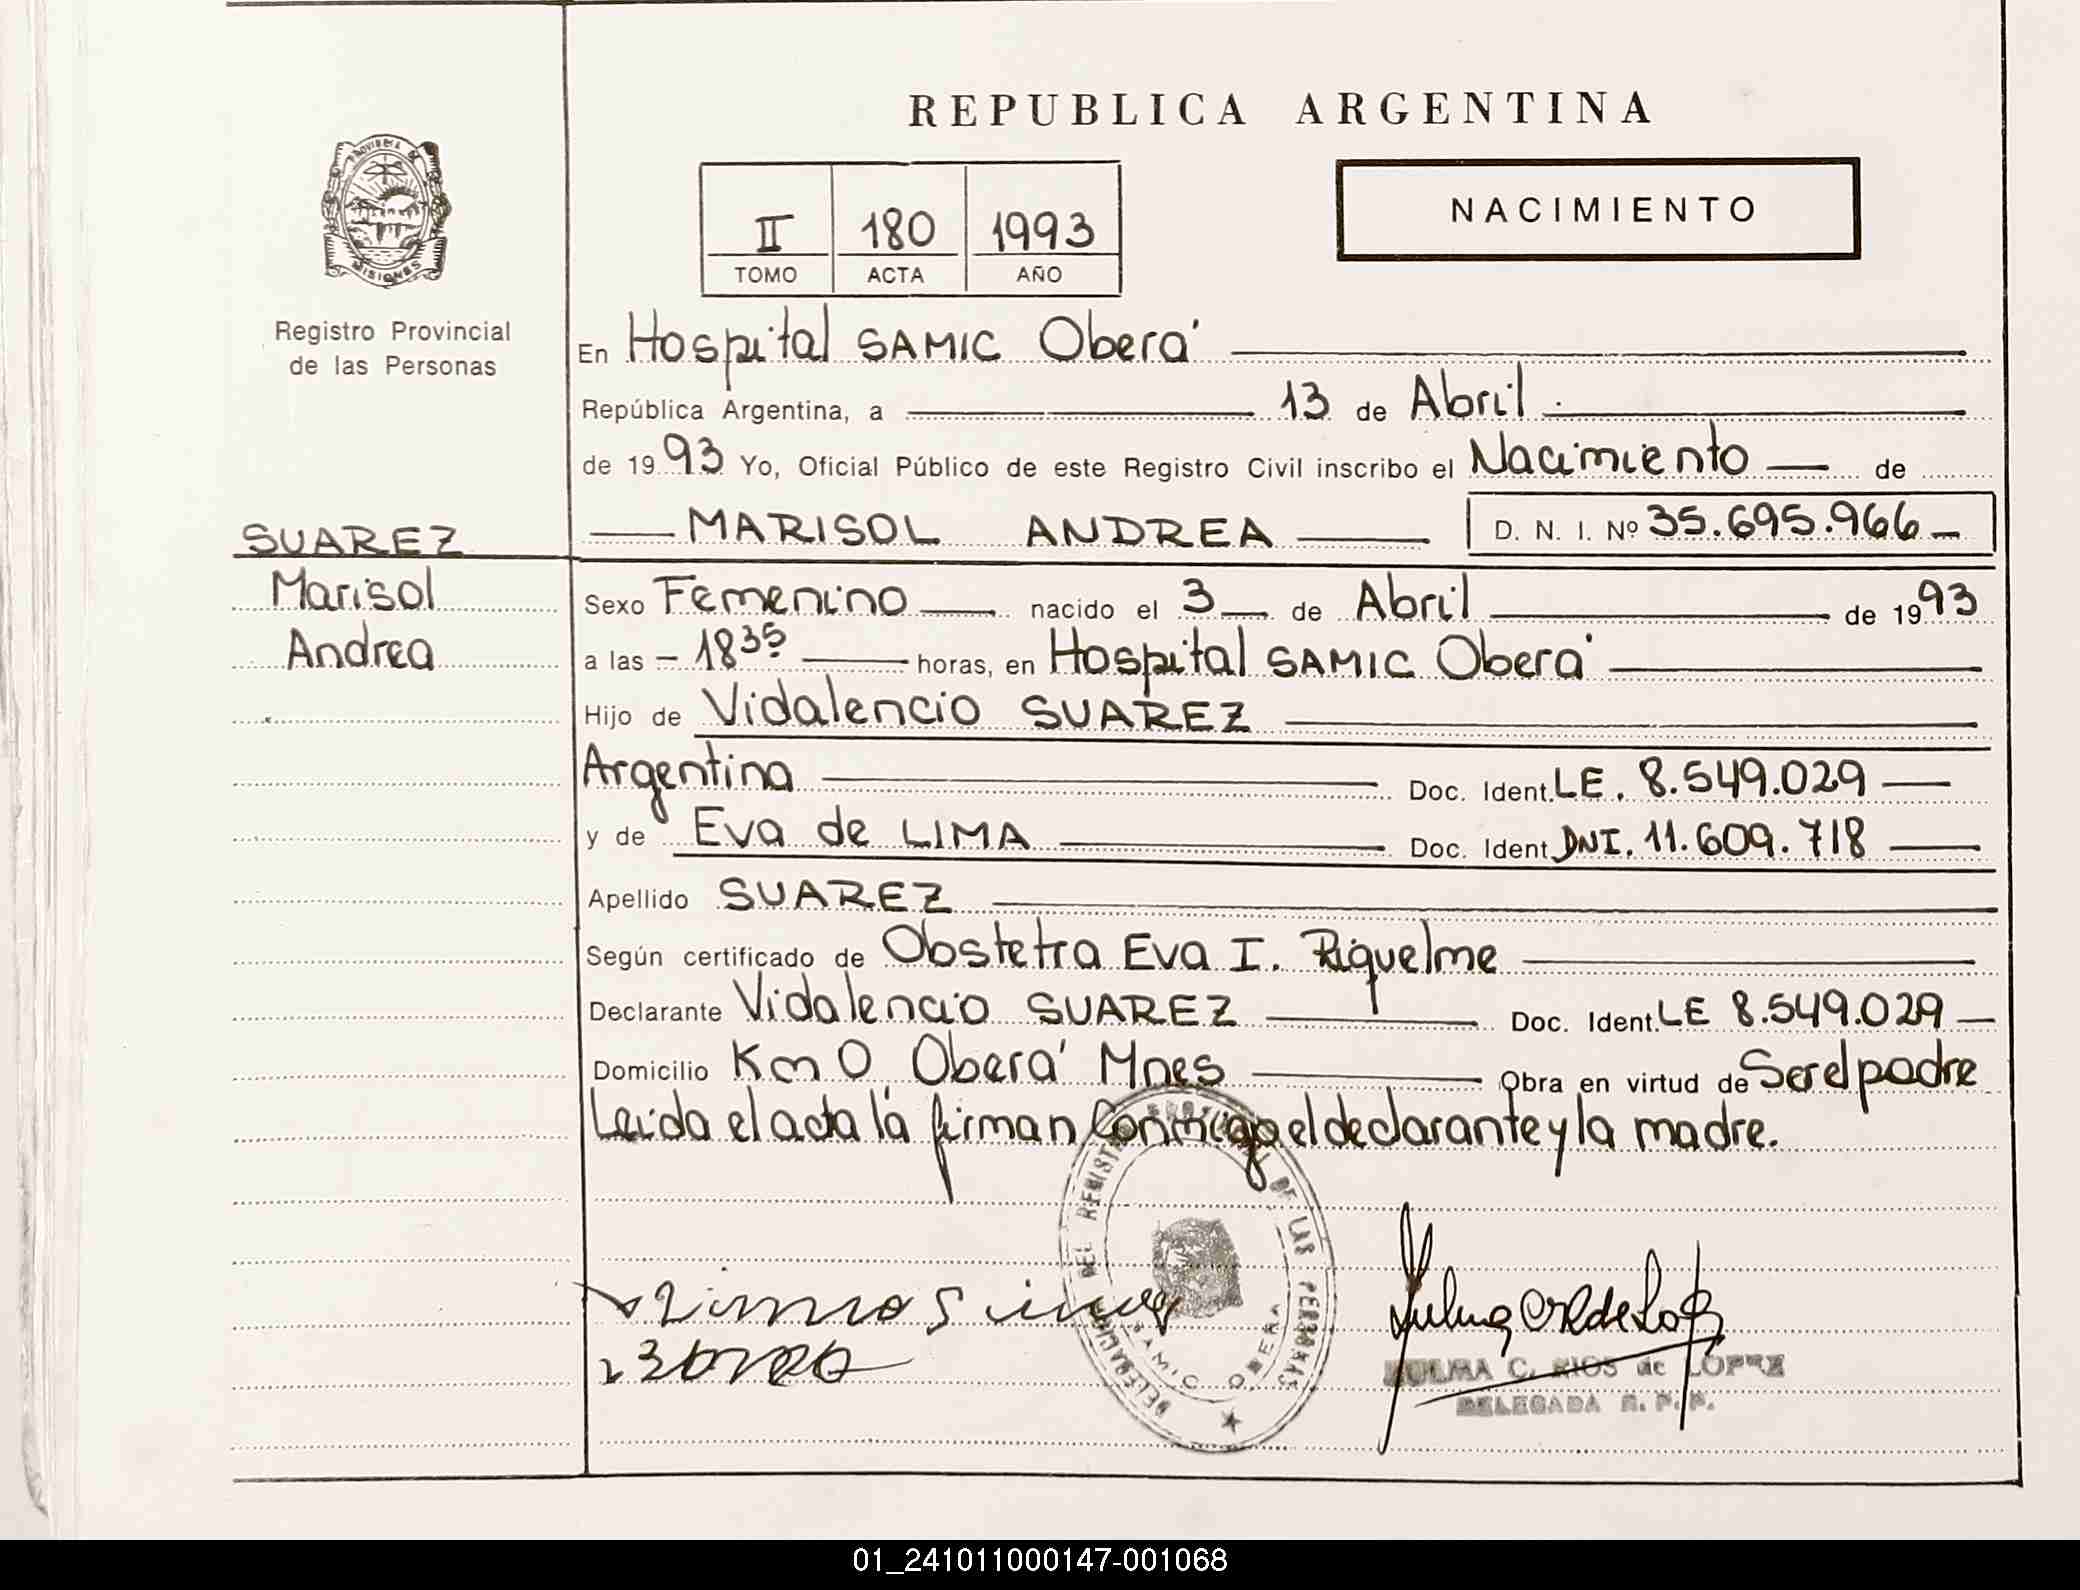 REPUBLICA ARGENTINA
PROVINCIA DE
MISIONES
Registro Provincial
de las Personas
II 180 1993
TOMO ACTA AÑO
NACIMIENTO
En Hospital SAMIC Oberá
República Argentina, a 13 de Abril
de 1993 Yo, Oficial Público de este Registro Civil inscribo el Nacimiento de
MARISOL ANDREA D. N. I. Nº 35.695.966
SUAREZ
Marisol
Andrea
Sexo Femenino nacido el 3 de Abril de 1993
a las 18 35 horas, en Hospital SAMIC Oberá
Hijo de Vidalencio SUAREZ
Argentina Doc. Ident. LE. 8.549.029
y de Eva de LIMA Doc. Ident. DNI. 11.609.718
Apellido SUAREZ
Según certificado de Obstetra Eva I. Riquelme
Declarante Vidalencio SUAREZ Doc. Ident. LE 8.549.029
Domicilio Km 0 Oberá Mnes Obra en virtud de Ser el padre
Leída el acta la firman conmigo el declarante y la madre.
DELEGACION DEL REGISTRO DE LAS PERSONAS
SAMIC OBERA
ZULMA C. RIOS de LOPEZ
DELEGADA R. P. P.
01_241011000147-001068